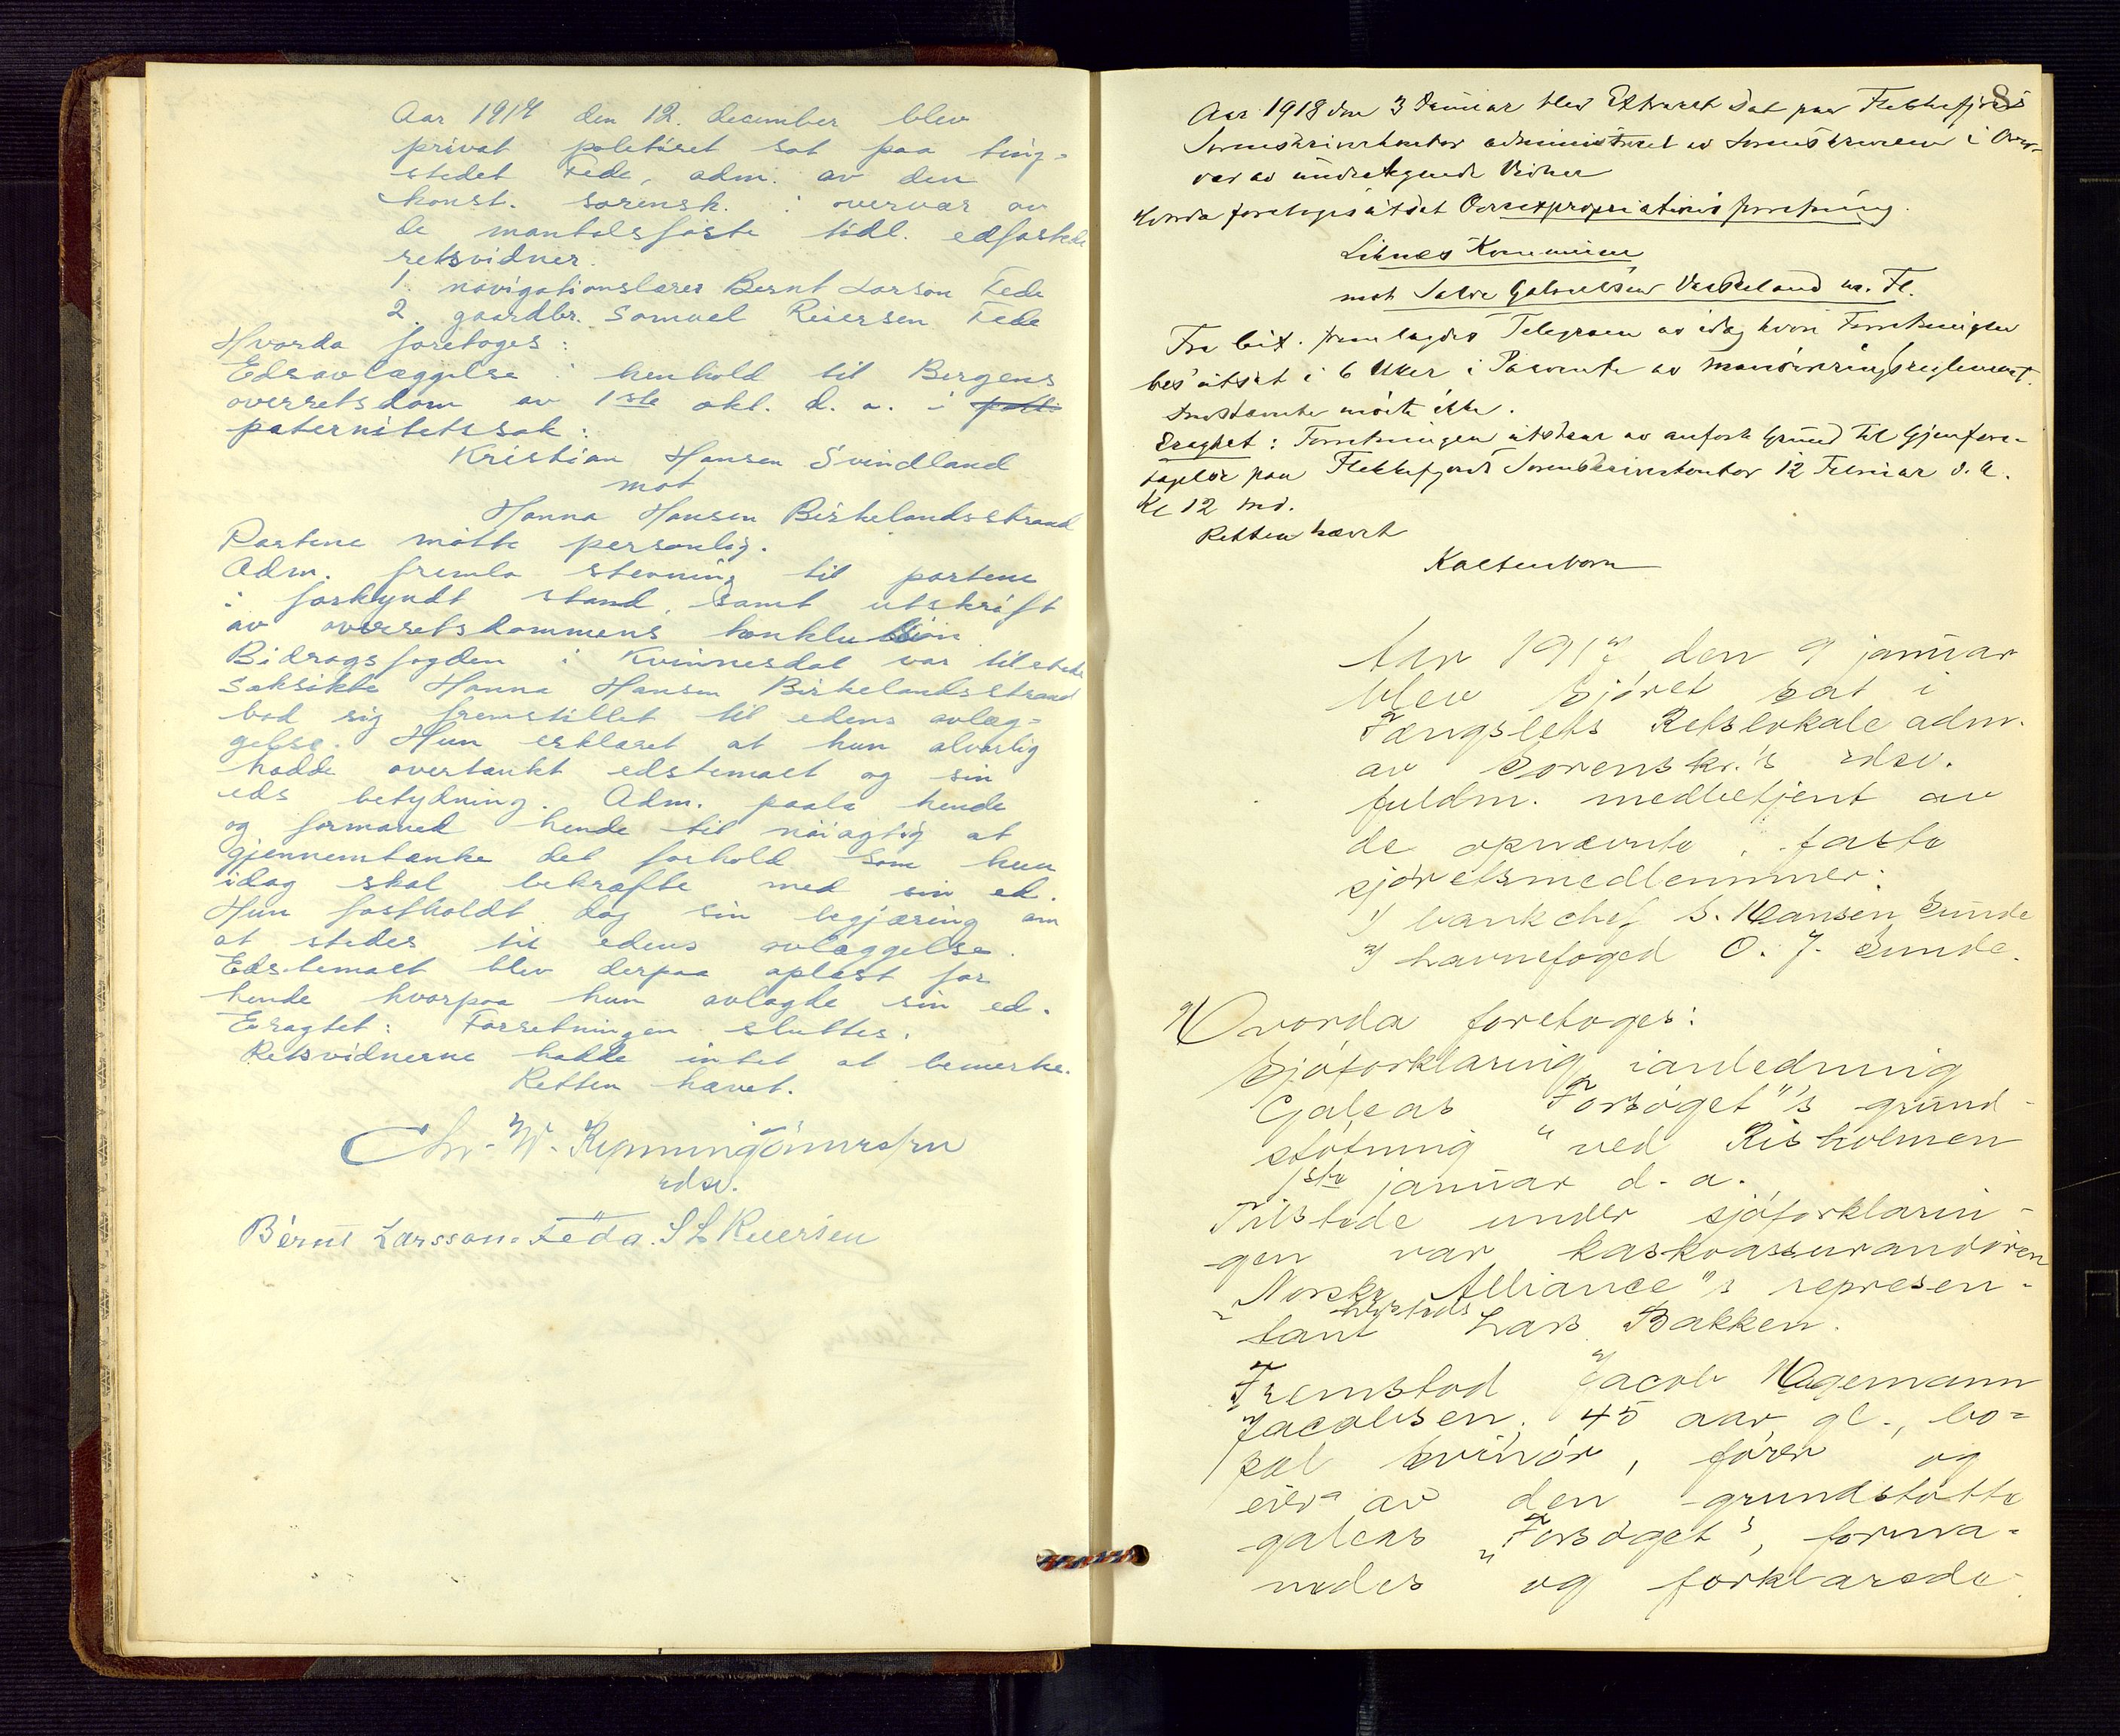 Aar 1917 den 12. december blev
privat politiret sat paa ting-
stedet Fede, adm. av den
konst. sorensk. i overvær av
de mantalsførte tidl. edfæstede
retsvidner.
1. navigationslærer Bernt Larson Fede
2. gaardbr. Samuel Reiersen Fede
Hvorda foretoges:
Edsavlæggelse i henhold til Bergens
overretsdom av 1ste okt. d. a. i
paternitetssak:
Kristian Hansen Svindland
mot
Hanna Hansen Birkelandsstrand
Partene møtte personlig.
Adm. fremla stevning til partene
i forkyndt stand, samt utskrift
av overretsdommens konklusion
Bidragsfogden i Kvinnesdal var tilstede
Saksøkte Hanna Hansen Birkelandsstrand
bød sig fremstillet til edens avlæg-
gelse. Hun erklæret at hun alvorlig
hadde overtænkt edstemaet og sin
eds betydning. Adm. paala hende
og formaned hende til nøiagtig at
gjennemtænke det forhold som hun
idag skal bekræfte med sin ed.
Hun fastholdt dog sin begjæring om
at stedes til edens avlæggelse.
Edstemaet blev derpaa oplæst for
hende hvorpaa hun avlagde sin ed.
Eragtet: Forretningen sluttes.
Retsvidnerne hadde intet at bemerke.
Retten hævet.
Chr. W.
edsv.
Bernt Larsson. Feda. S L Reiersen
8
Aar 1918 den 3 Januar blev Extraret sat paa Flekkefjords
Sorenskriverkontor administreret av Sorenskriveren i Over-
vær av undertegnede Vidner
Hvorda foretoges utsat Overexpropriationsforretning.
Liknes Kommune
mot Salve Gabrielsen Vaskeland m. Fl.
Fra Cit. fremlagdes Telegram av idag hvori Forretningen
bes utsat i 6 Uker i Paavente av manøvreringsreglement.
Indstævnte møtte ikke.
Eragtet: Forretningen utstaar av anført Grund til Gjenfore-
tagelse paa Flekkefjords Sorenskriverkontor 12 Februar d. A.
Kl 12 md.
Retten hævet
Kaltenborn
Aar 1917 den 9 januar
blev Sjøret sat i
Fængslets Retslokale adm.
av Sorenskr.'s edsv.
fuldm. medbetjent av
de opnævnte, faste
sjøretsmedlemmer:
1) bankchef S. Hansen Sunde
2) havnefoged O. J. Sunde.
Hvorda foretoges:
Sjøforklaring ianledning
Galeas "Forsøget"'s grund-
støtning ved Risholmen
1ste januar d. a.
Tilstede under sjøforklarin-
gen var kaskoassurandøren
"Norske Alliance"'s represen-
tant Lars Bakken.
Fremstod Jacob Hagemann
Jacobsen, 45 aar gl., bo-
pæl Svinør, fører og
eier av den grundstøtte
galeas "Forsøget", forma-
nedes og forklarede